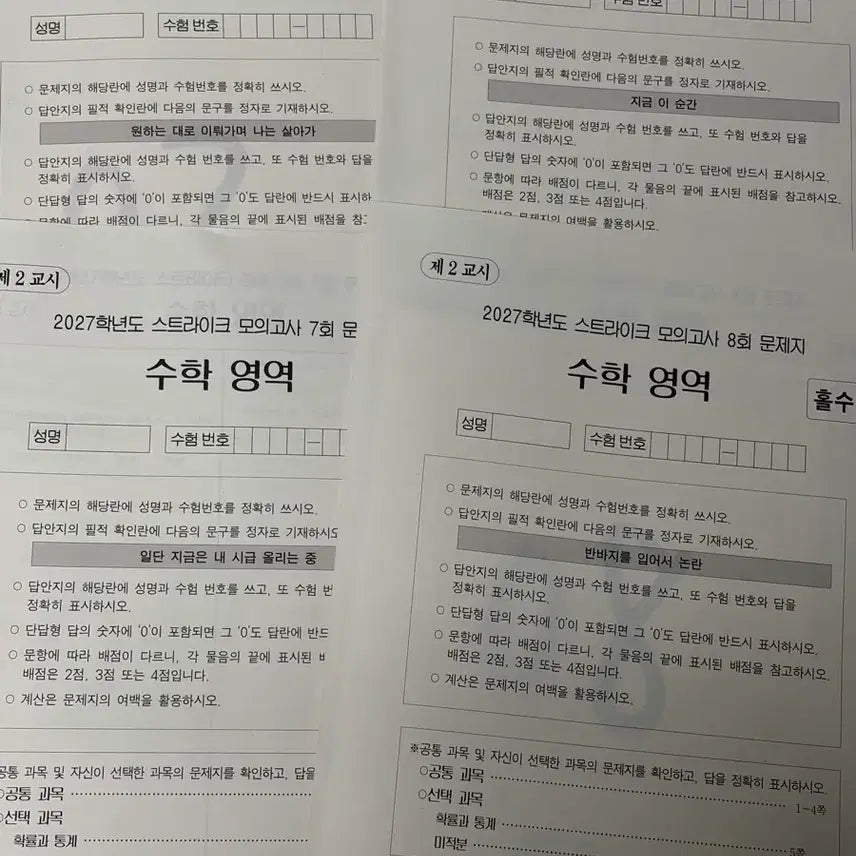 성명
수험 번호
—
○ 문제지의 해당란에 성명과 수험번호를 정확히 쓰시오.
○ 답안지의 필적 확인란에 다음의 문구를 정자로 기재하시오.
원하는 대로 이뤄가며 나는 살아가
○ 답안지의 해당란에 성명과 수험 번호를 쓰고, 또 수험 번호와 답을
정확히 표시하시오.
○ 단답형 답의 숫자에 ‘0’이 포함되면 그 ‘0’도 답란에 반드시 표시하
○ 문항에 따라 배점이 다르니, 각 물음의 끝에 표시된 배점을 참
수험 번호
—
○ 문제지의 해당란에 성명과 수험번호를 정확히 쓰시오.
○ 답안지의 필적 확인란에 다음의 문구를 정자로 기재하시오.
지금 이 순간
○ 답안지의 해당란에 성명과 수험 번호를 쓰고, 또 수험 번호와 답을
정확히 표시하시오.
○ 단답형 답의 숫자에 ‘0’이 포함되면 그 ‘0’도 답란에 반드시 표시하시오.
○ 문항에 따라 배점이 다르니, 각 물음의 끝에 표시된 배점을 참고하시오.
배점은 2점, 3점 또는 4점입니다.
계산은 문제지의 여백을 활용하시오.
제 2 교시
2027학년도 스트라이크 모의고사 7회 문
수학 영역
성명
수험 번호
—
○ 문제지의 해당란에 성명과 수험번호를 정확히 쓰시오.
○ 답안지의 필적 확인란에 다음의 문구를 정자로 기재하시오
일단 지금은 내 시급 올리는 중
○ 답안지의 해당란에 성명과 수험 번호를 쓰고, 또 수험 번
정확히 표시하시오.
○ 단답형 답의 숫자에 ‘0’이 포함되면 그 ‘0’도 답란에 반드
○ 문항에 따라 배점이 다르니, 각 물음의 끝에 표시된
배점은 2점, 3점 또는 4점입니다.
○ 계산은 문제지의 여백을 활용하시오.
공통 과목 및 자신이 선택한 과목의 문제지를 확인하고, 답을
○공통 과목
○선택 과목
확률과 통계
제 2 교시
2027학년도 스트라이크 모의고사 8회 문제지
수학 영역
홀수
성명
수험 번호
—
○ 문제지의 해당란에 성명과 수험번호를 정확히 쓰시오.
○ 답안지의 필적 확인란에 다음의 문구를 정자로 기재하시오.
반바지를 입어서 논란
○ 답안지의 해당란에 성명과 수험 번호를 쓰고, 또 수험 번호와 답을
정확히 표시하시오.
○ 단답형 답의 숫자에 ‘0’이 포함되면 그 ‘0’도 답란에 반드시 표시하시오.
○ 문항에 따라 배점이 다르니, 각 물음의 끝에 표시된 배점을 참고하시오.
배점은 2점, 3점 또는 4점입니다.
○ 계산은 문제지의 여백을 활용하시오.
※공통 과목 및 자신이 선택한 과목의 문제지를 확인하고, 답을 정확히 표시하시오.
○공통 과목 1~4쪽
○선택 과목
확률과 통계 5쪽
미적분